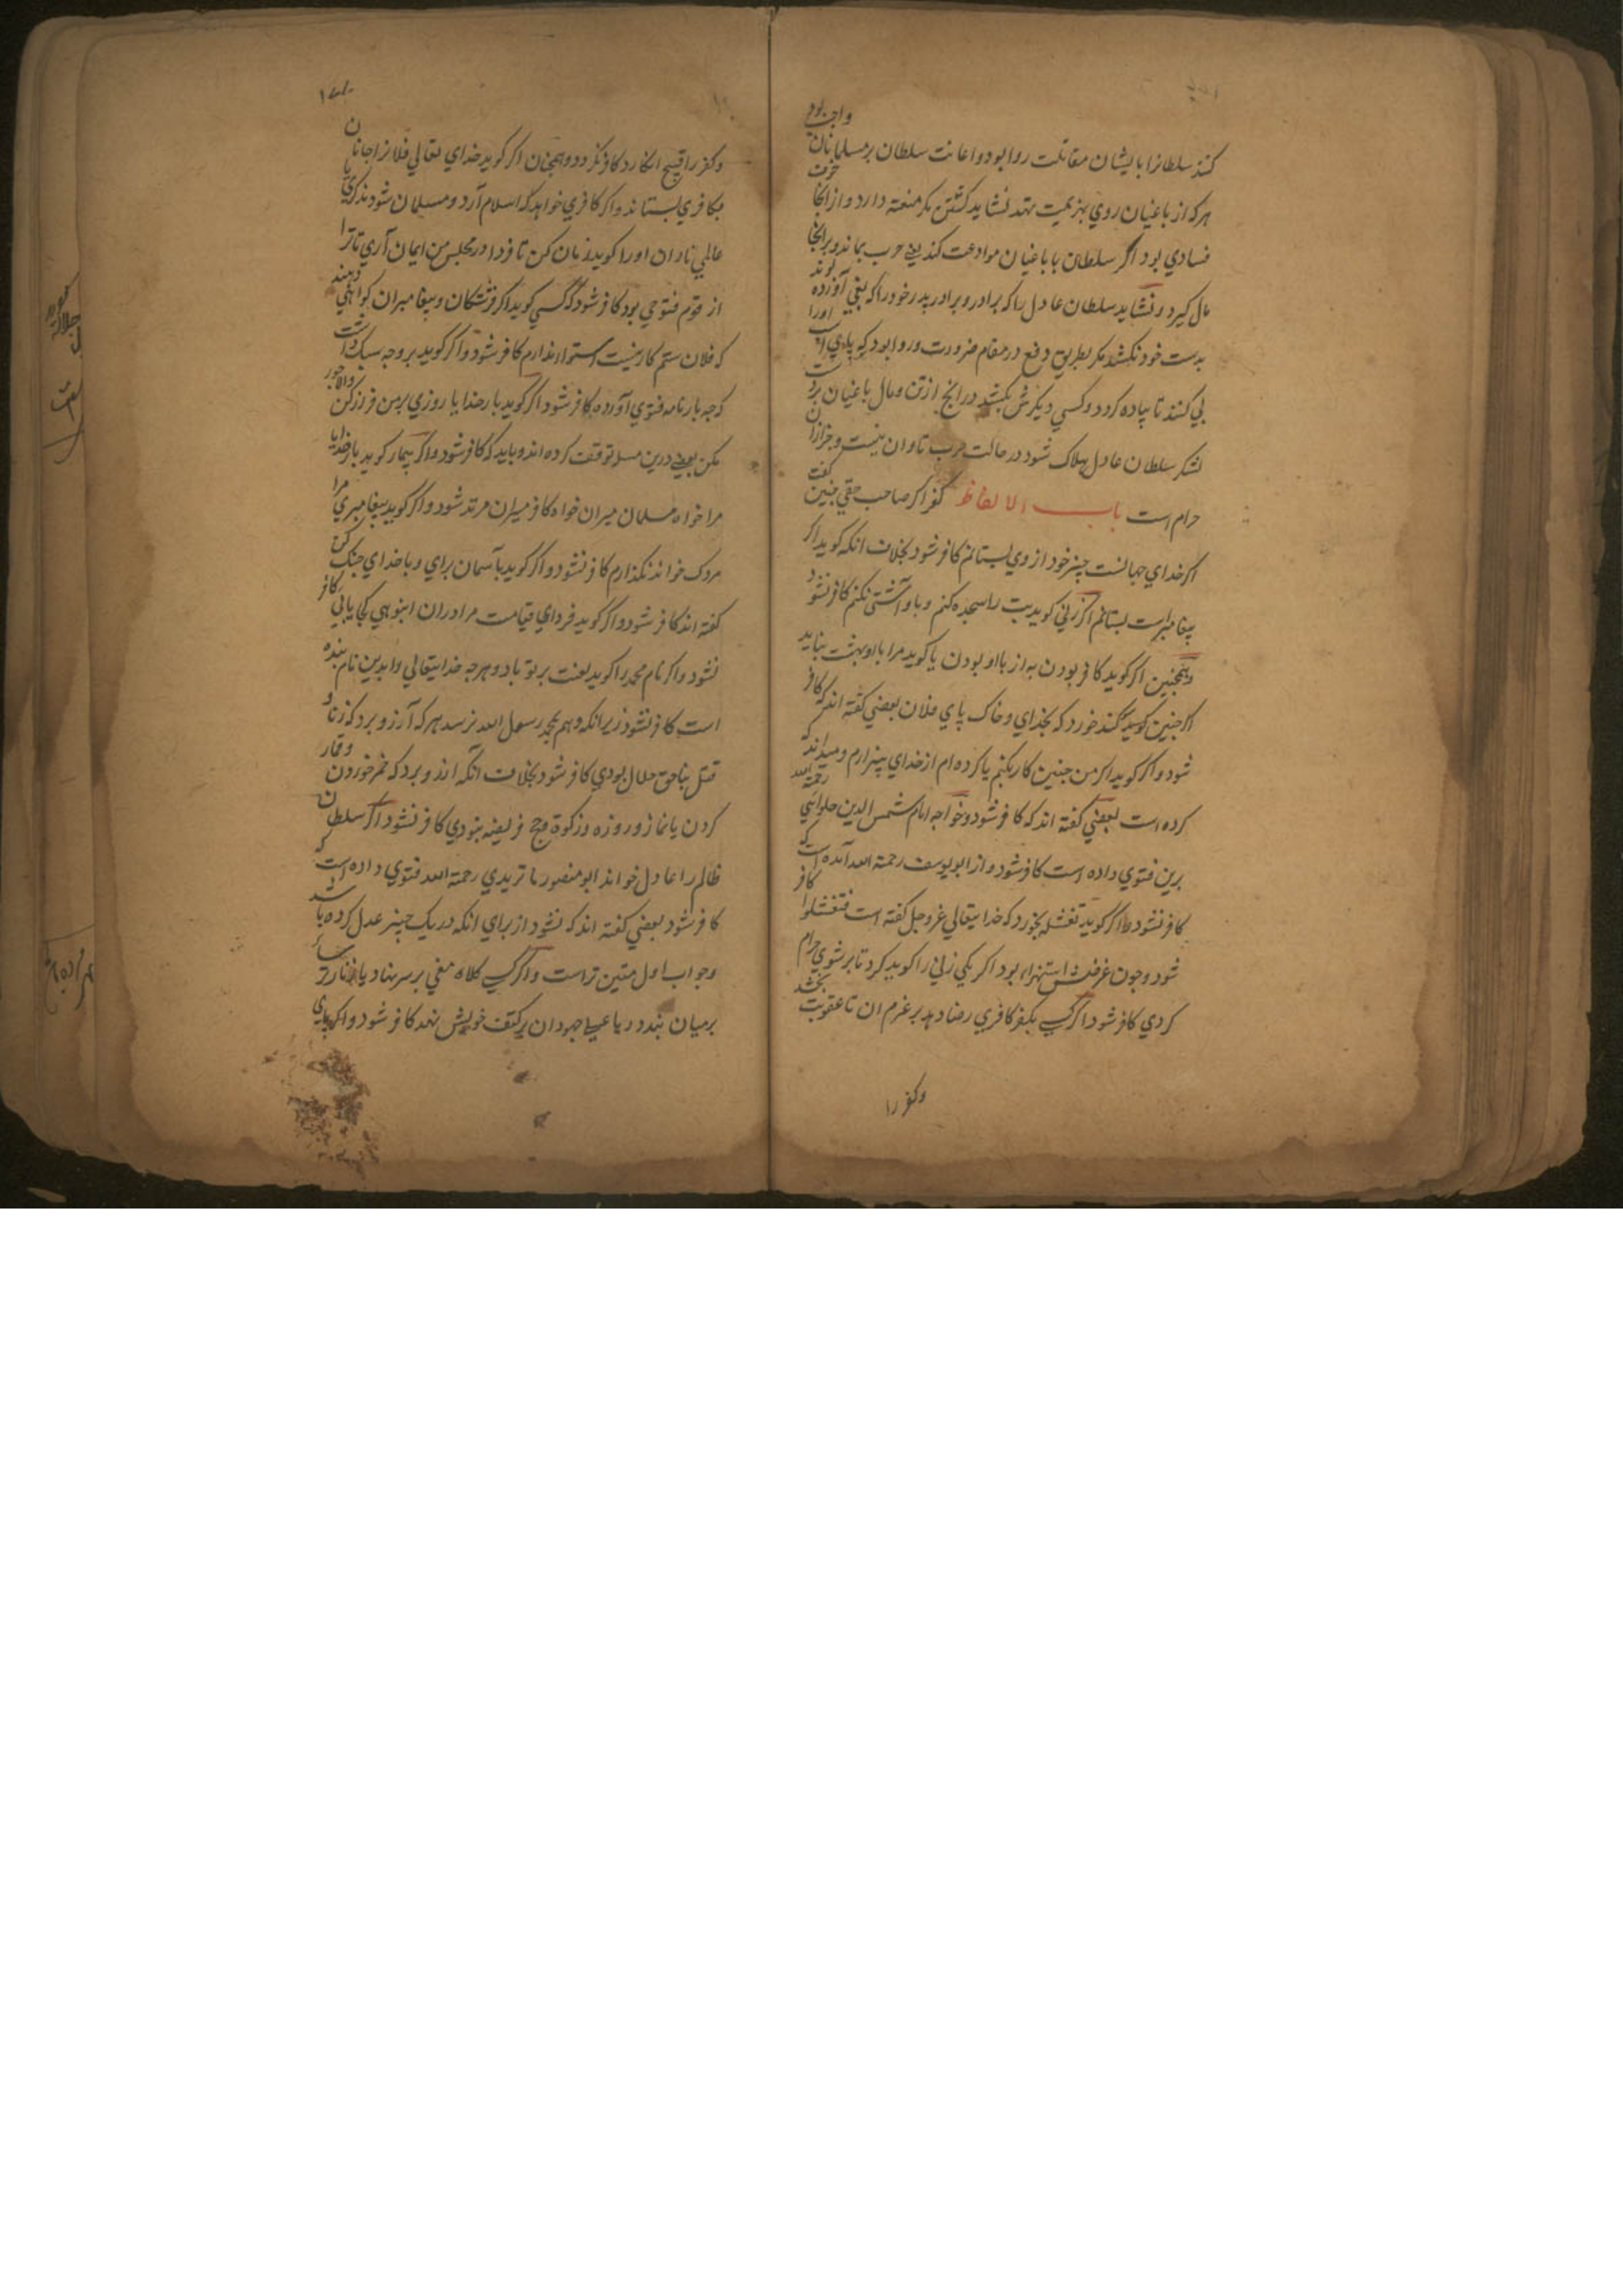 کنند سلطانرا با ایشان مقاتلت روا بود و اعانت سلطان بر مسلمانان واجب بود
هرکه از باغیان روي بهزیمت نهد نشاید کشتن مکر منعة دارد و از انجا خوف
فسادي بود اگر سلطان با باغیان موادعت کند یعنی حرب بماند و بر انجا
مال کیرد و نشاید سلطان عادل را که برادر و برادر پدر خود را که بغي آورده بوند
بدست خود بکشد مکر بطریق دفع در مقام ضرورت و روا بود که پاي اسب او را
پي کنند تا پیاده کردد و کسي دیکرش بکشد در انچ از تن و مال باغیان بر دست
لشکر سلطان عادل هلاک شود در حالت حرب تاوان نیست و جز از ان
حرام است باب الالفاظ کفر اکر صاحب حقي چنین کفت
اکر خداي جهانست چیز خود از وي بستانم کافر شود بخلاف انکه کوید اکر
پیغامبر است بستانم اکر زني کوید بت را سجده کنم و با او آشتي نکنم کافر شود
و همچنین اکر کوید کافر بودن به از با او بودن یا کوید مرا با او بهشت نباید
اکر چنین کوید سوکند خورد که بخداي و خاک پاي فلان بعضي کفته اند که کافر
شود و اکر کوید اکر من چنین کار بکنم یا کرده ام از خداي بیزارم و میداند که
کرده است بعضي کفته اند که کافر شود و خواجه امام شمس الدین حلوایي رحمة الله
برین فتوي داده است کافر شود و از ابو یوسف رحمة الله آمده است که
کافر نشود و اکر کوید تغشله بخورد که خدایتعالي عز و جل کفته است فتغشلوا کافر
شود و چون غرضش استهزاء بود اکر یکي زني را کوید کرد تا بر شوي حرام
کردي کافر شود اکر کسي بکفر کافري رضا دهد بر عزم ان تا عقوبت بخشد
وکفر را
١٧١
وکفر را قبیح انکارد کافر نکردد و همچنان اکر کوید خداي تعالي فلانرا جانان
بکافري بستاند و اکر کافري خواهد که اسلام آرد و مسلمان شود مذکري یا
عالمي نادان او را کوید زمان کن تا فردا در مجلس من ایمان آري تا ترا
از قوم فتوحي بود کافر شود اکر کسي کوید اکر فرشتکان و پیغامبران کواهي دهند
که فلان ستم کار نیست استوار ندارم کافر شود و اکر کوید بر وجه سبک داشت
که چه بار نامه فتوي آورده کافر شود اکر کوید بار خدایا روزي بر من فراز کن و الا جور
مکن بعضی درین مسله توقف کرده اند و باید که کافر شود و اکر بیمار کوید بار خدایا
مرا خواه مسلمان میران خواه کافر میران مرتد شود و اکر کوید پیغامبري مرا
مردک خواند نکذارم کافر نشود و اکر کوید بآسمان براي و با خداي جنک کن
کفته اند کافر شود و اکر کوید فرداي قیامت مرا در ان انبوهي کجا یابي کافر
نشود و اکر نام محمد را کوید لعنت بر تو باد و هرچه خدایتعالي را بدین نام بنده
است کافر نشود زیرا انکه وهم بمحمد رسول الله نرسد هرکه آرزو برد که زنا و
قتل بناحق حلال بودي کافر شود بخلاف انکه اندوه برد که خمر خوردن و قمار
کردن یا نماز و روزه و زکوة و حج فریضه نبودي کافر نشود اکر سلطان
ظالم را عادل خواند ابو منصور ماتریدي رحمة الله فتوي داده است که
کافر شود بعضي کفته اند که نشود از براي انکه در یک چیز عدل کرده باشد
و جواب اول متین تر است و اکر کسي کلاه مغي بر سر نهاد یا زنار ترسا
بر میان بندد و یا عسلي جهودان بر کتف خویش نهد کافر شود و اکر براي